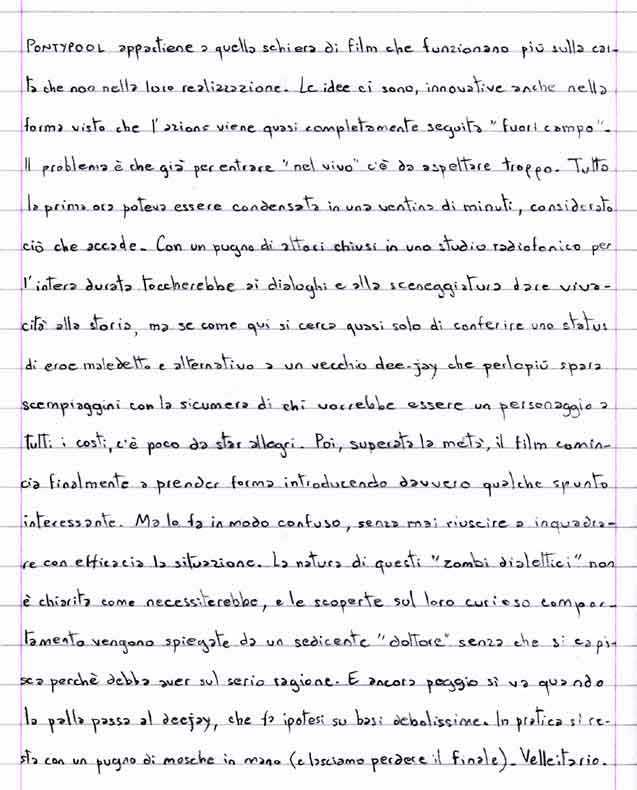 PONTYPOOL appartiene a quella schiera di film che funzionano più sulla car-
ta che non nella loro realizzazione. Le idee ci sono, innovative anche nella
forma visto che l'azione viene quasi completamente seguita "fuori campo".
Il problema è che già per entrare "nel vivo" c'è da aspettare troppo. Tutta
la prima ora poteva essere condensata in una ventina di minuti, considerato
ciò che accade. Con un pugno di attori chiusi in uno studio radiofonico per
l'intera durata toccherebbe ai dialoghi e alla sceneggiatura dare viva-
cità alla storia, ma se come qui si cerca quasi solo di conferire uno status
di eroe maledetto e alternativo a un vecchio dee-jay che perlopiù spara
scempiaggini con la sicumera di chi vorrebbe essere un personaggio a
tutti i costi, c'è poco da star allegri. Poi, superata la metà, il film comin-
cia finalmente a prender forma introducendo davvero qualche spunto
interessante. Ma lo fa in modo confuso, senza mai riuscire a inquadra-
re con efficacia la situazione. La natura di questi "zombi dialettici" non
è chiarita come necessiterebbe, e le scoperte sul loro curioso compor-
tamento vengono spiegate da un sedicente "dottore" senza che si capi-
sca perchè debba aver sul serio ragione. E ancora peggio si va quando
la palla passa al deejay, che fa ipotesi su basi debolissime. In pratica si re-
sta con un pugno di mosche in mano (e lasciamo perdere il finale). Velleitario.